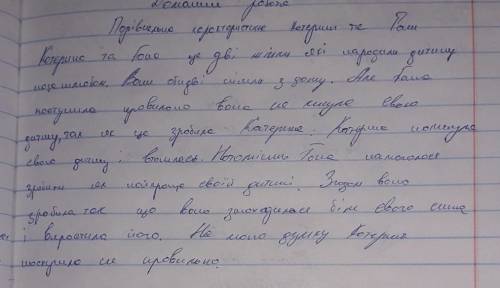 Домашня робота
Порівняльна характеристика Катерини та Ганни
Катерина та Ганна це дві жінки які народили дитину
поза шлюбом. Вони обидві пішли з дому. Але Ганна
поступила правильно вона не кинула свою
дитину, так як це зробила Катерина. Катерина покинула
свою дитину і втопилась. Натомість Ганна намагалася
зробити як найкраще своїй дитині. Згодом вона
зробила так що вона знаходилася біля свого сина
і виростила його. На мою думку Катерина
поступила не правильно.